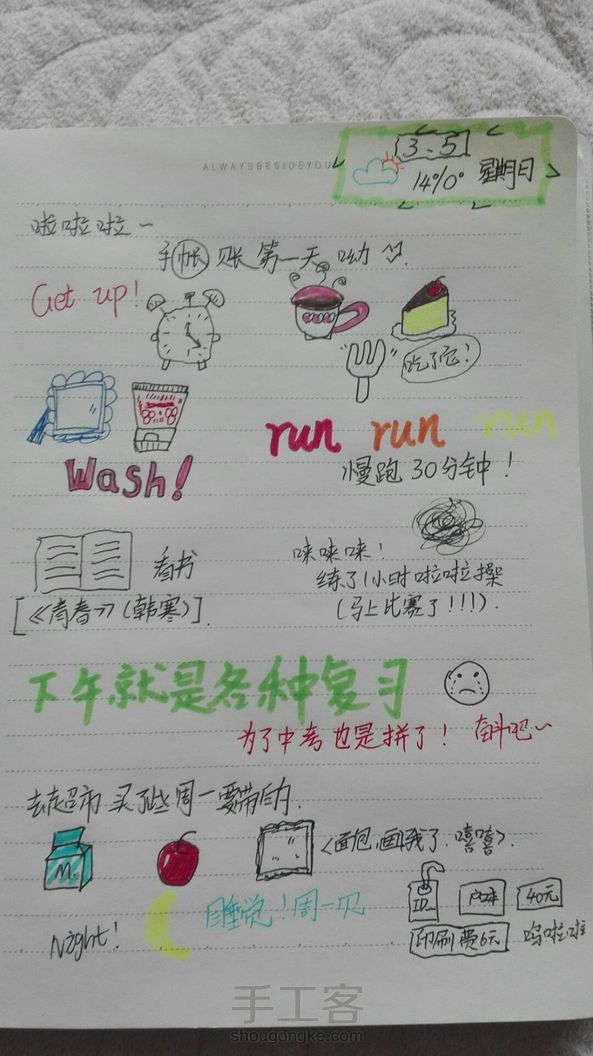 ALWAYSBESIDEYOU
3.5
14°/0° 星期日
啦啦啦~
手帐 贝账 第一天 呦
Get up!
吃了它!
run run run
Wash!
慢跑 30分钟!
看书
[《青春》(韩寒)].
咪咪咪!
练了1小时啦啦操
(马上比赛了!!!).
下午就是各种复习
为了中考也是拼了! 奋斗吧~
去超市 买了些周一要带的
M.
<面包,画残了.嘻嘻>.
睡觉!周一见
40元
印刷费6元 呜啦啦
Night!
手工客
shougongke.com